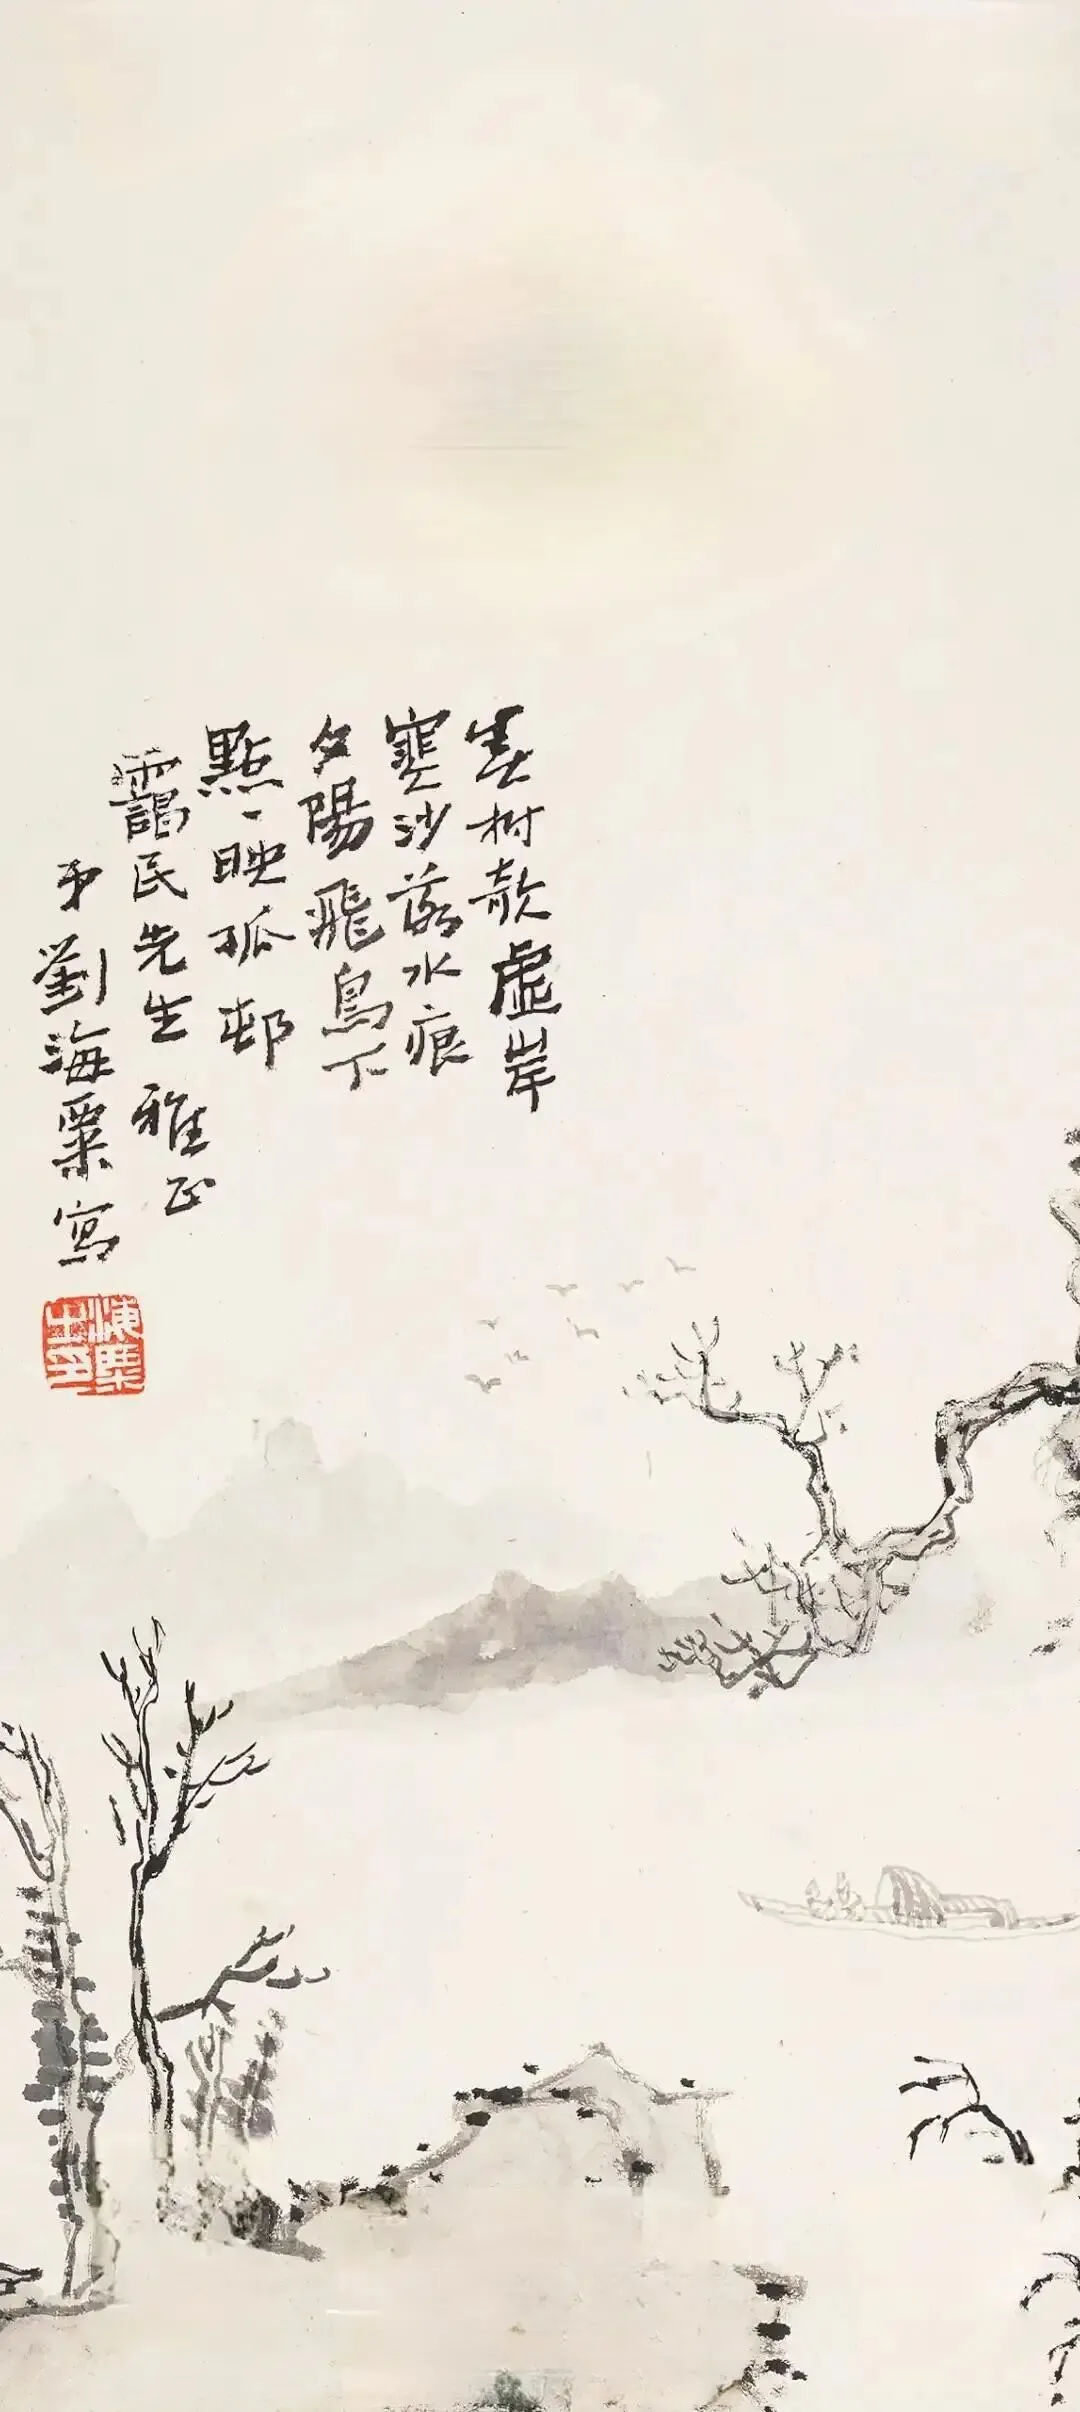 树欹虛岸
寒沙落水痕
夕陽飛鳥下
點〻映孤邨
靄民先生 雅正
弟劉海粟寫
海粟之印